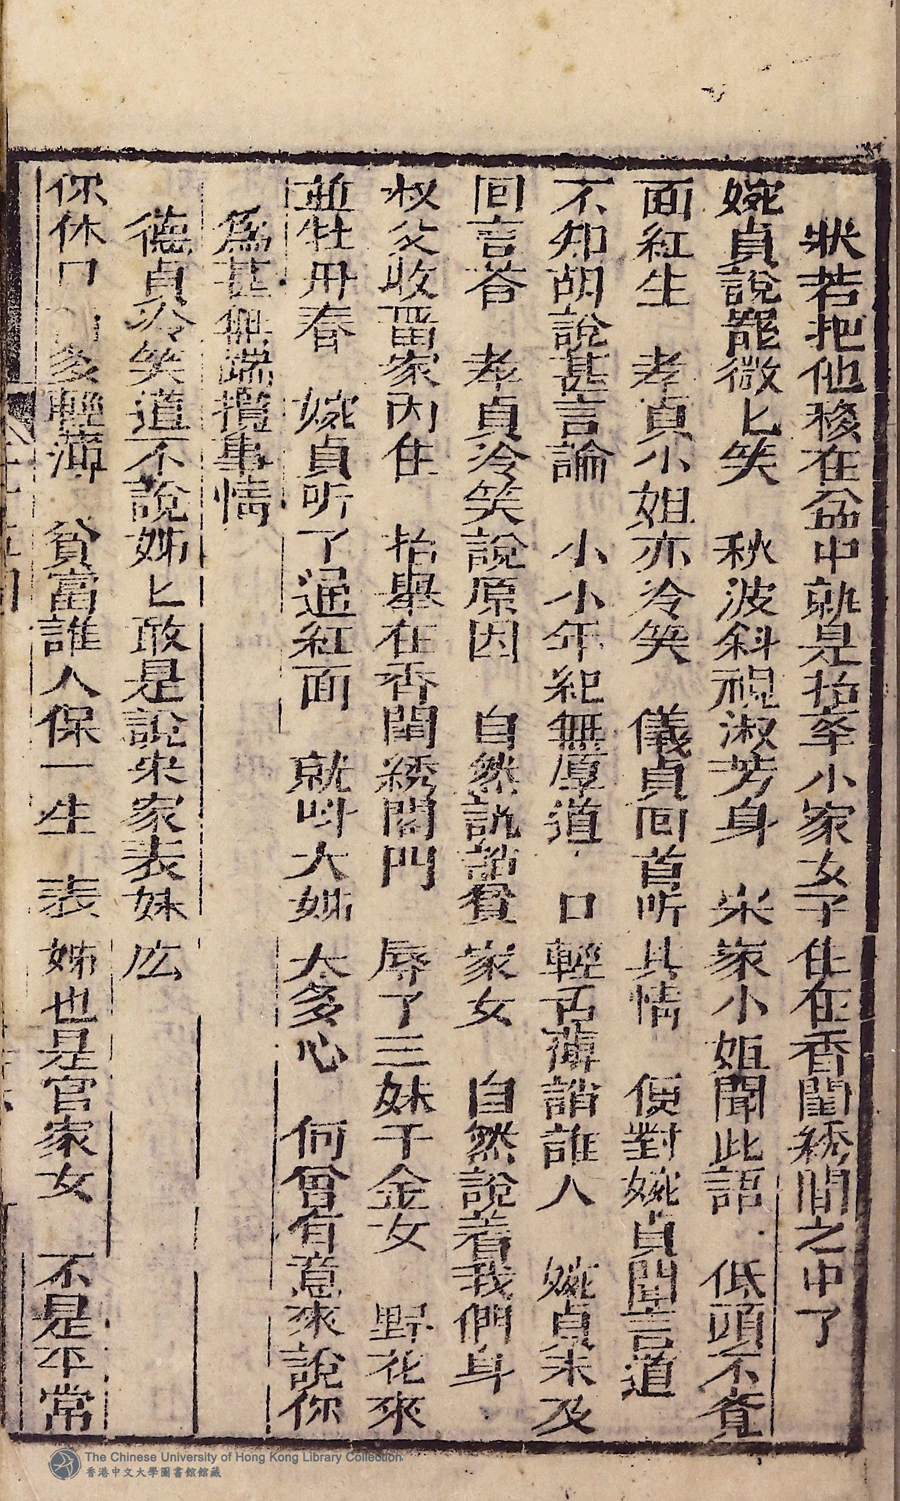 狀若把他移在盆中就是抬举小家女子住在香閨綉閣之中了
婉貞說罷微匕笑　秋波斜視淑芳身　宋家小姐聞此語　低頭不覚
面紅生　孝貞小姐亦冷笑　儀貞回首听其情　便對婉貞聞言道
不知胡說甚言論　小小年紀無厚道　口輕舌薄誚誰人　婉貞未及
回言答　孝貞冷笑說原因　自然說誚貧家女　自然說着我們身
叔父收畱家內住　抬舉在香閨綉閣門　辱了三妹千金女　野花來
並牡丹春　婉貞听了通紅面　就呌大姊太多心　何曾有意來說你
為甚無端攬事情
德貞冷笑道不說姊匕敢是說宋家表妹庅
你休口多輕薄　貧富誰人保一生　表姊也是官家女　不是平常
The Chinese University of Hong Kong Library Collection
香港中文大學圖書館館藏